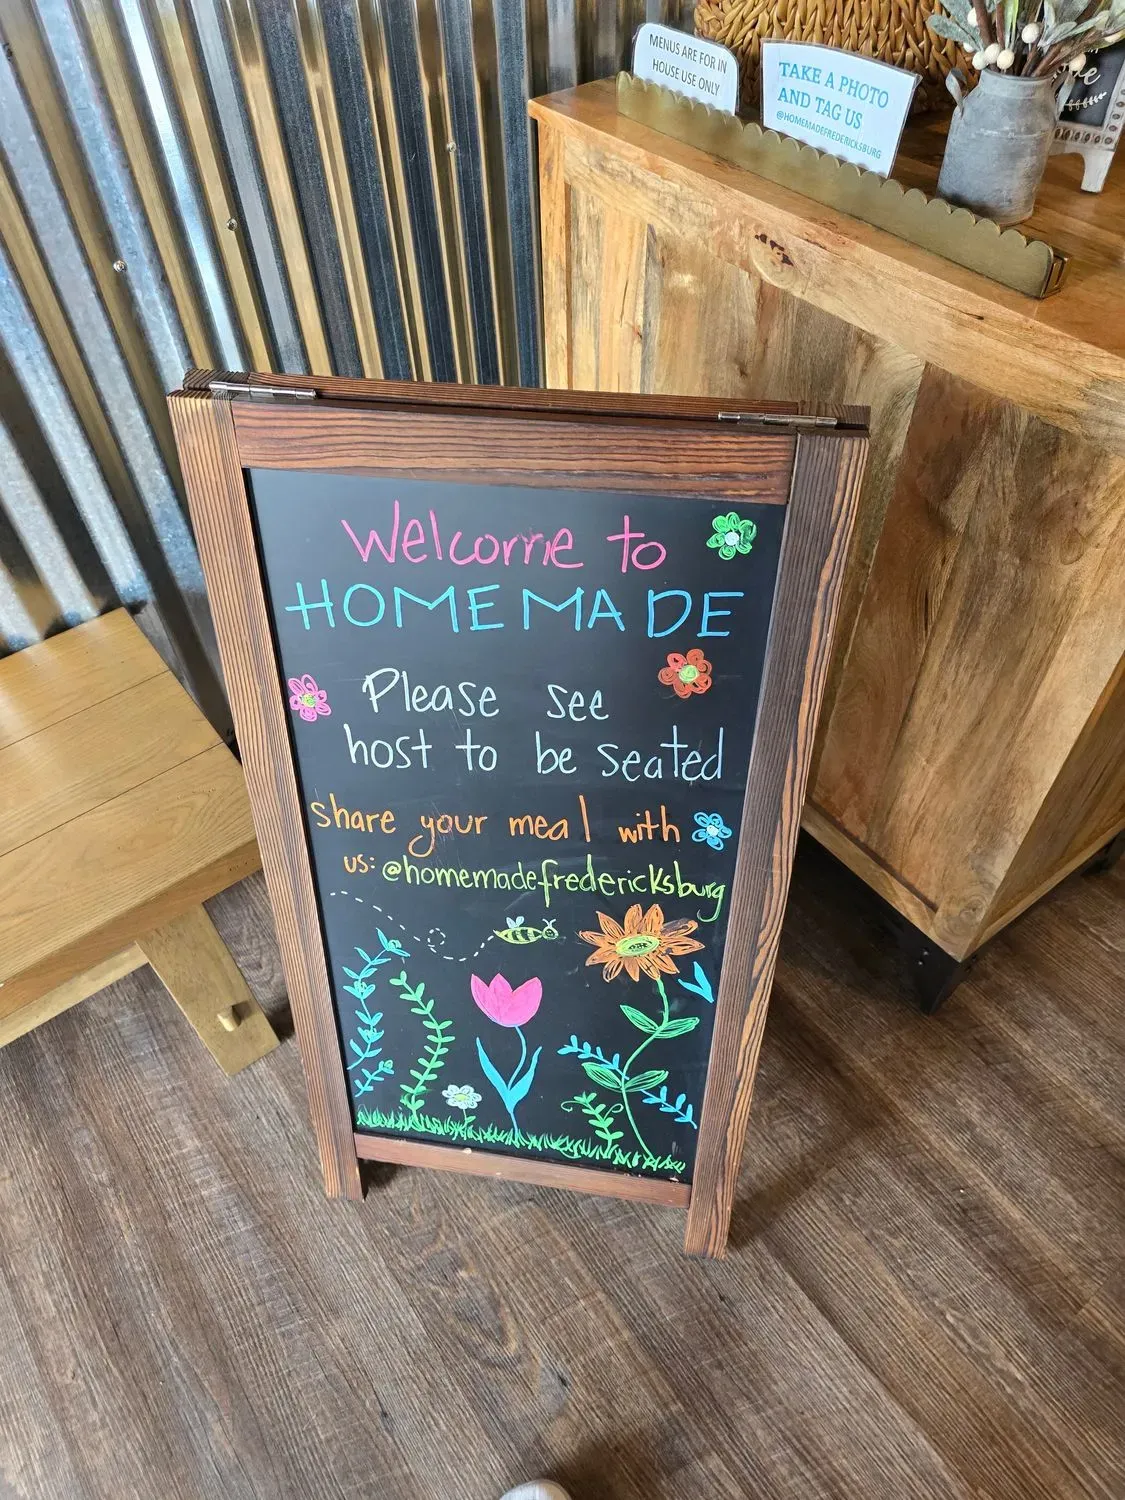 MENUS ARE FOR IN
HOUSE USE ONLY
TAKE A PHOTO
AND TAG US
@HOMEMADEFREDERICKSBURG
Welcome to
HOMEMADE
Please see
host to be seated
share your meal with
us: @homemadefredericksburg